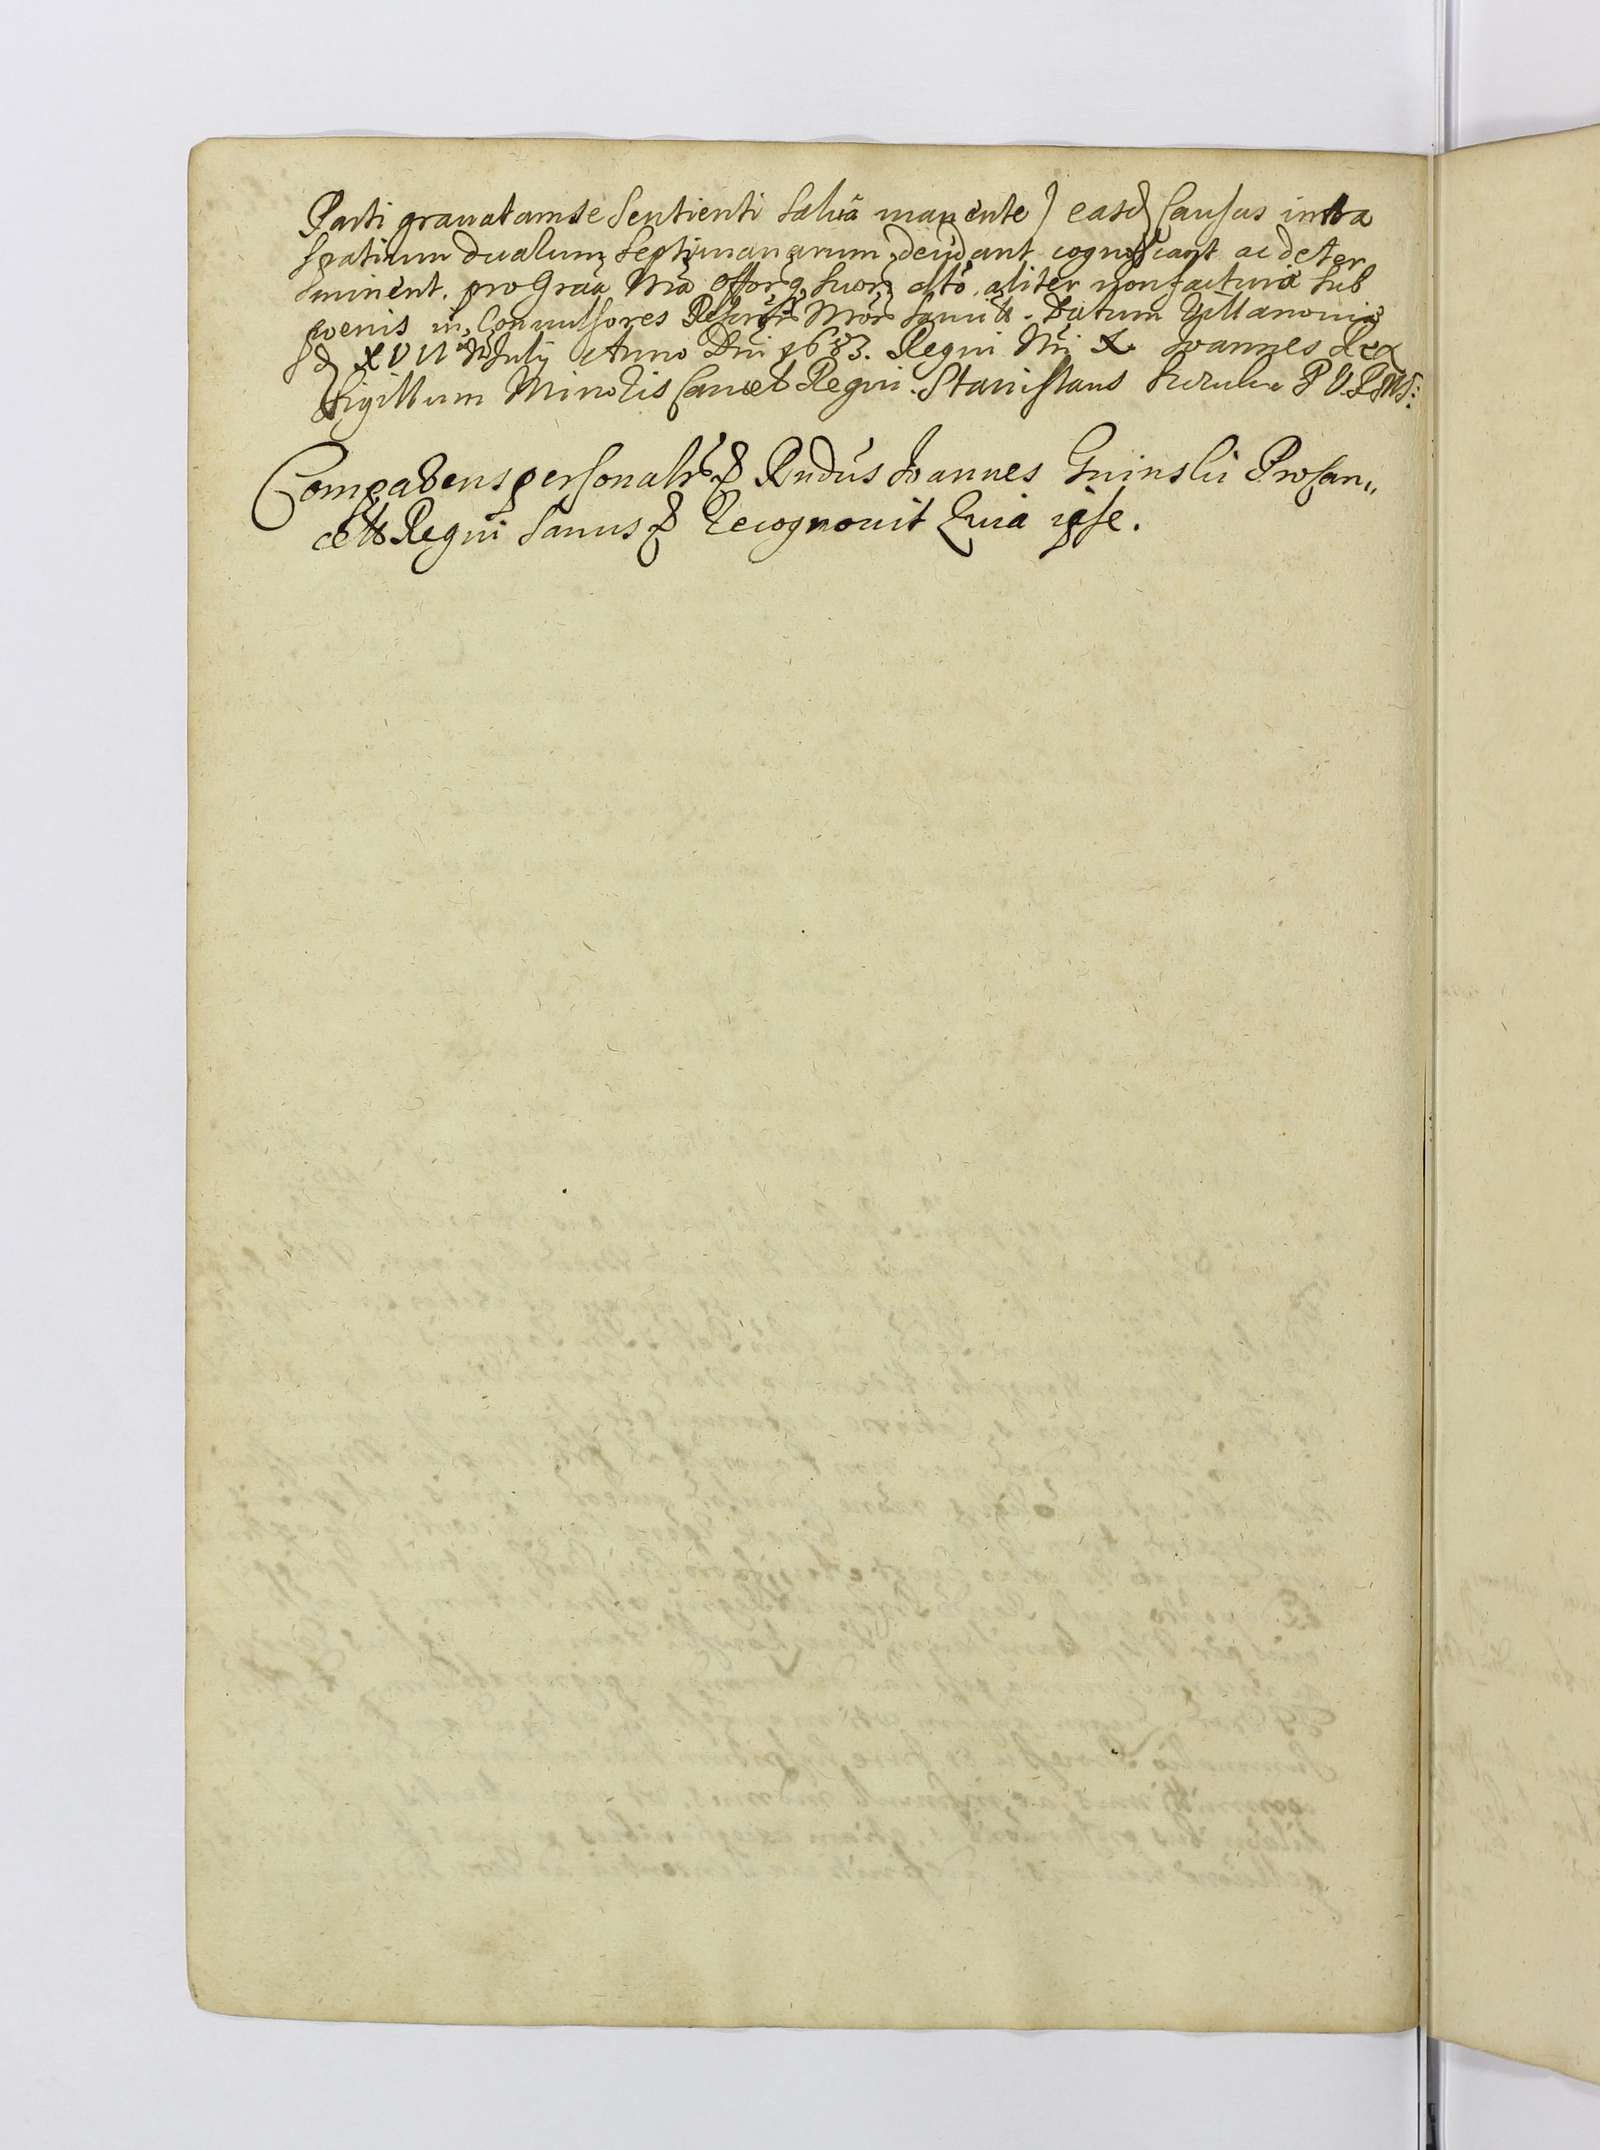 Parti gravatam se sentienti salvâ manente) easd causas intra
spatium dualum septimanarum decidant cognoscant ac deter
minent. pro Graa Nrã Offorq suor dtõ, aliter non facturi sub
poenis in Convulsores Rescriptor Nror sancitis. Datum Villanoviae
d XVII July Anno Dni 1683. Regni Nri X Joannes Rex
Sigillum Minoris Cancel Regni. Stanislaus
Comparens personalr Rndus Joannes Gninski Procan„
cells Regni sanus Recognovit Quia ipse.